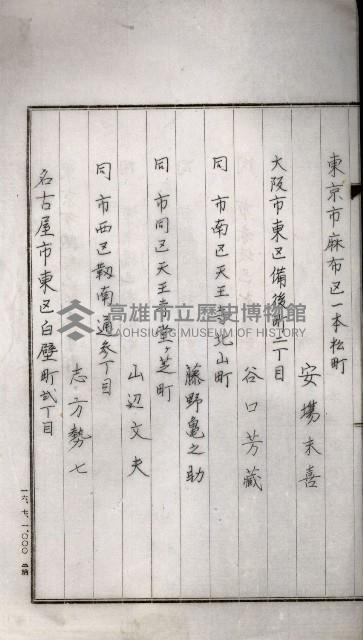 東京市麻布区一本松町
安場末喜
大阪市東区備後町二丁目
谷口芳藏
同 市南区天王寺北山町
藤野亀之助
同 市同区天王寺堂ヶ芝町
山辺文夫
同 市西区靱南通参丁目
志方勢七
名古屋市東区白壁町弍丁目
高雄市立歷史博物館
KAOHSIUNG MUSEUM OF HISTORY
一六、七、一、〇〇〇